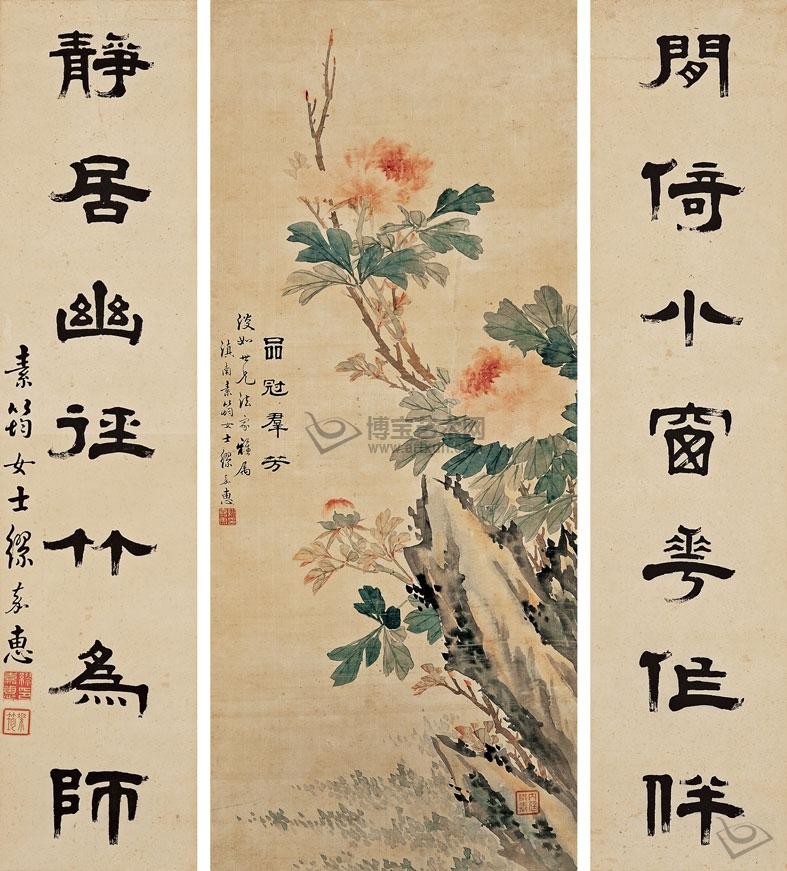 閒倚小窗花作伴
品冠羣芳
浚如世兄法家雅屬
滇南素筠女士繆嘉惠
靜居幽徑竹為師
素筠女士繆嘉惠
博宝艺术网
www.artxun.com